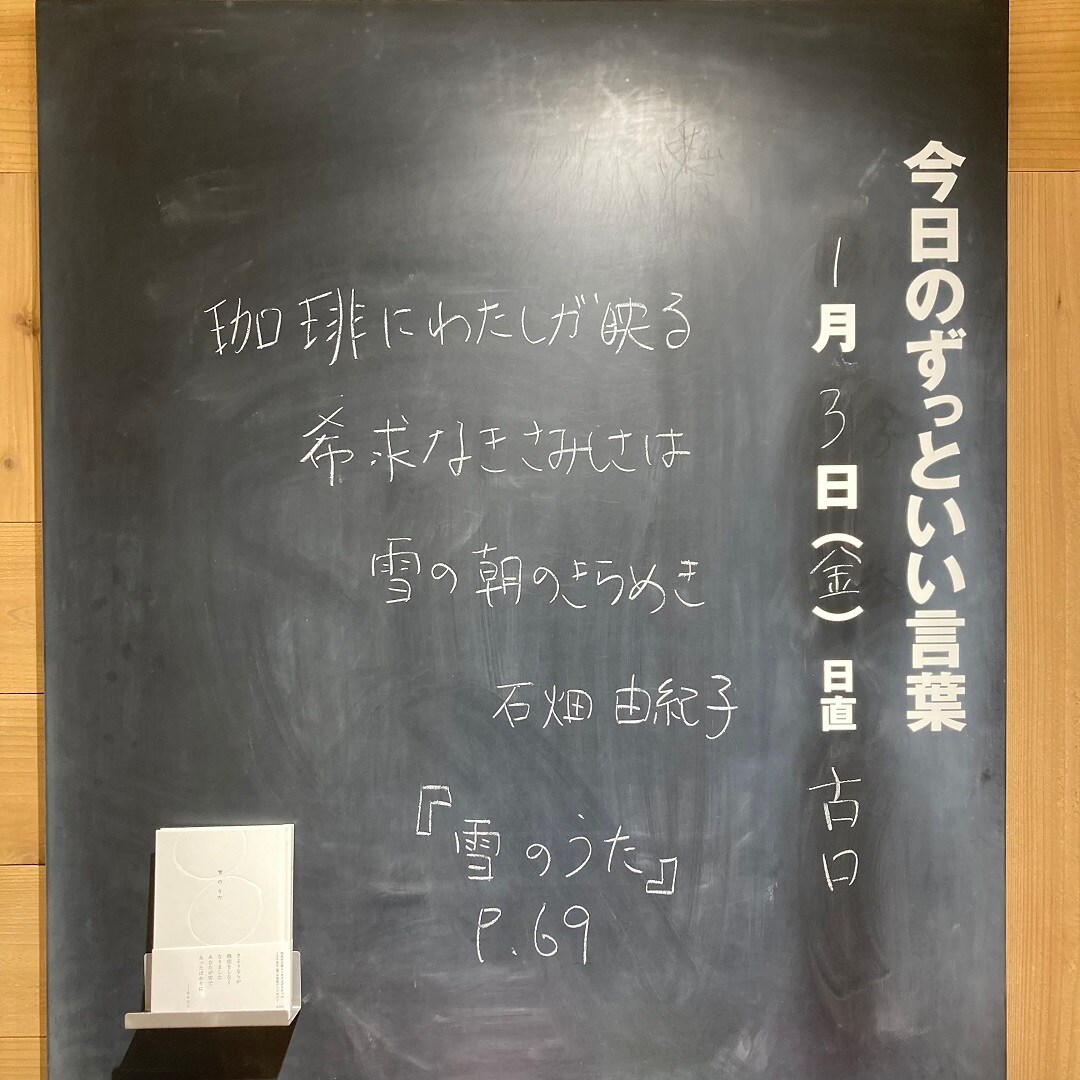 今日のずっといい言葉
1月3日(金) 日直 古口
珈琲にわたしが映る
希求なきさみしさは
雪の朝のきらめき
石畑 由紀子
『雪のうた』
P.69
雪のうた